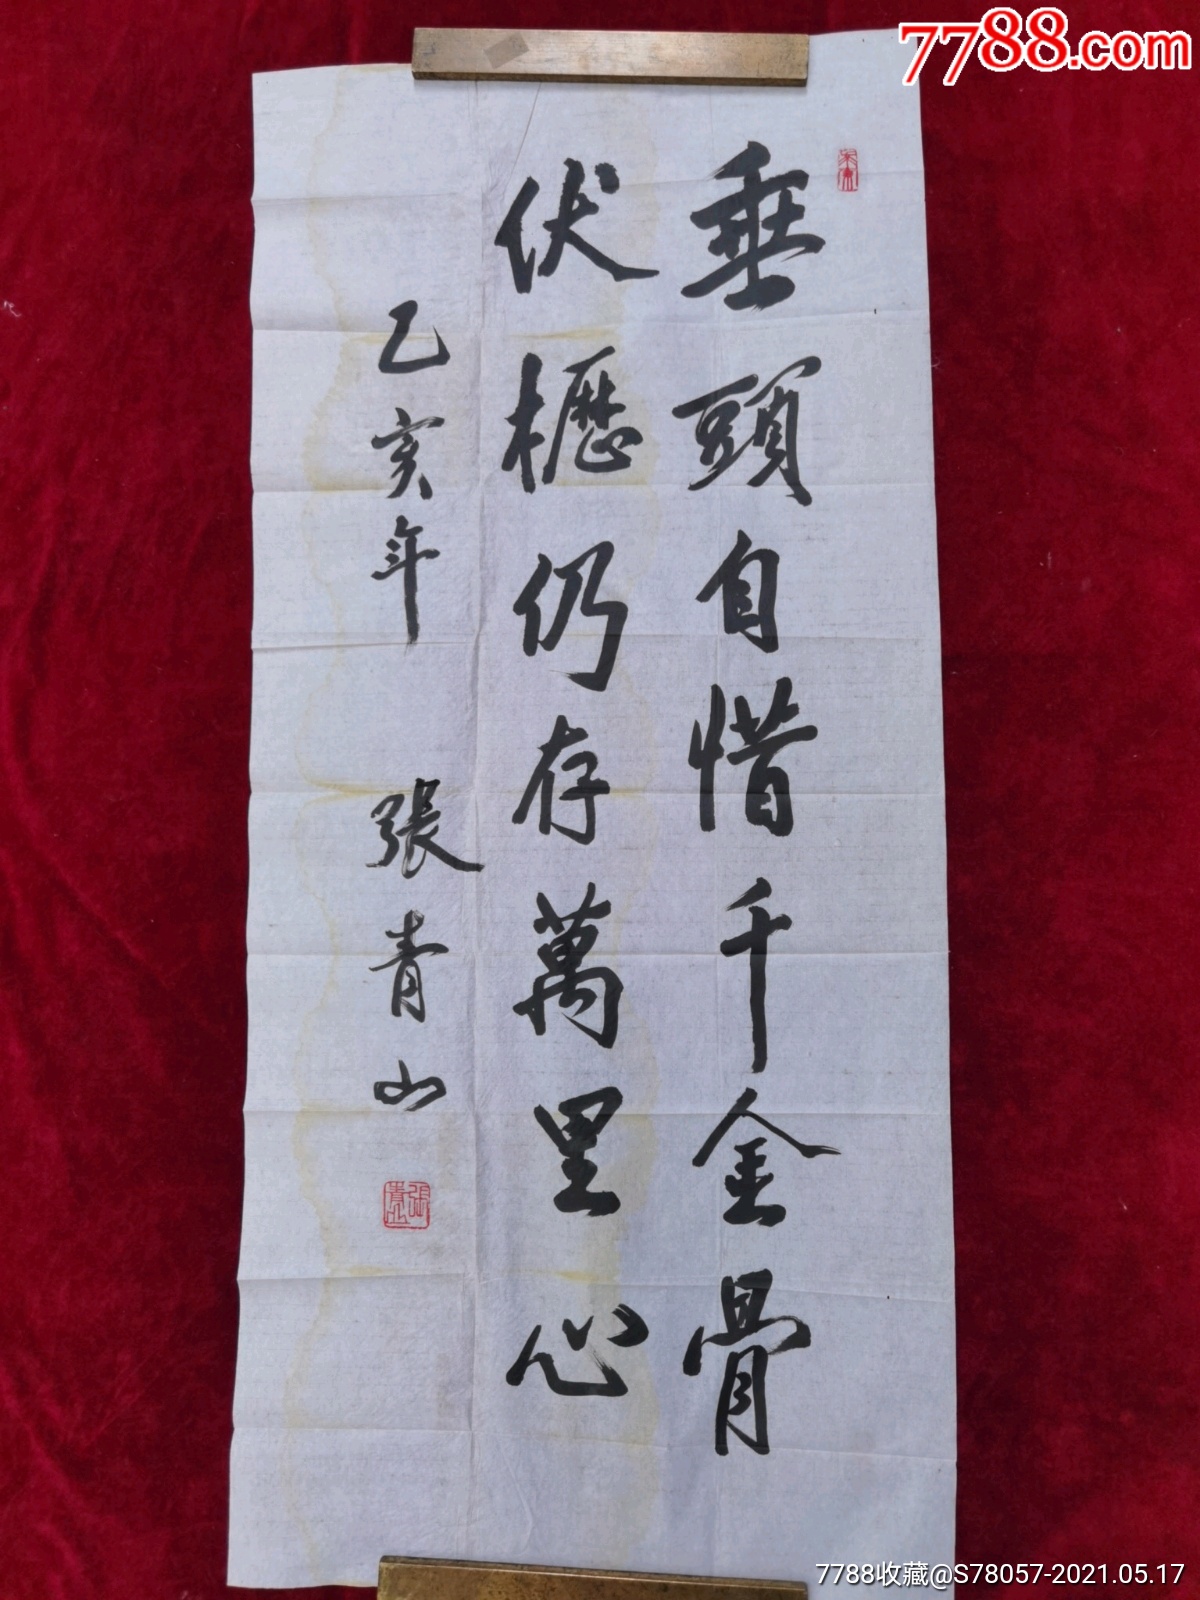 7788.com
垂頭自惜千金骨
伏櫪仍存萬里心
乙亥年 張青山
張青山
7788收藏@S78057-2021.05.17